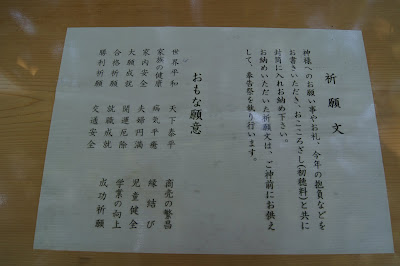 祈願文
神様へのお願い事やお礼、今年の抱負などを
お書きいただき、おこころざし(初穂料)と共に
封筒に入れお納め下さい。
お納めいただいた祈願文は、ご神前にお供え
して、奉告祭を執り行います。
おもな願意
世界平和 天下泰平 商売の繁昌
家族の健康 病気平癒 縁結び
家内安全 夫婦円満 児童健全
大願成就 開運厄除 学業の向上
合格祈願 就職成就 成功祈願
勝利祈願 交通安全